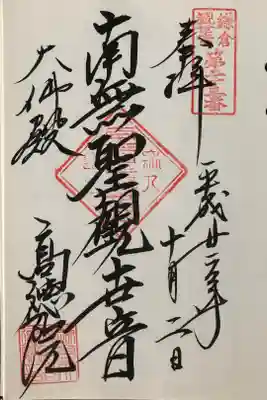 鎌倉
観音
第廿三番
奉拝
平成廿二年
十月二日
南無聖観世音
大仏殿
高徳院